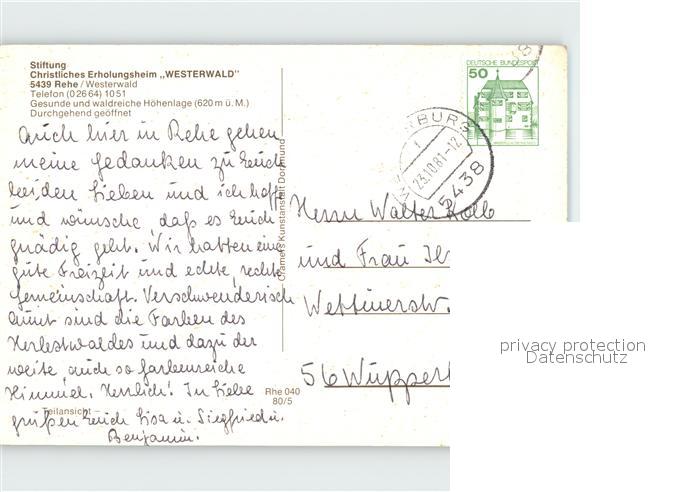 Stiftung
Christliches Erholungsheim „WESTERWALD"
5439 Rehe / Westerwald
Telefon (0 26 64) 10 51
Gesunde und waldreiche Höhenlage (620 m ü. M.)
Durchgehend geöffnet
Auch hier in Rehe gehen
meine Gedanken zu Euch
beiden Lieben und ich hoffe
und wünsche, daß es Euch
gnädig geht. Wir hatten eine
gute Freizeit und echte, rechte
Gemeinschaft. Verschwenderisch
bunt sind die Farben des
Herbstwaldes und dazu der
weite auch so farbenreiche
Himmel. Herrlich! In Liebe
grüßen Euch Lisa u. Siegfried u.
Benjamin.
Teilansicht
Rhe 040
80/5
Cramers Kunstanstalt Dortmund
50
DEUTSCHE BUNDESPOST
23.10.81-12
5438
Herrn Walter Kolb
und Frau
Wettinerstr.
56 Wuppert
privacy protection
Datenschutz